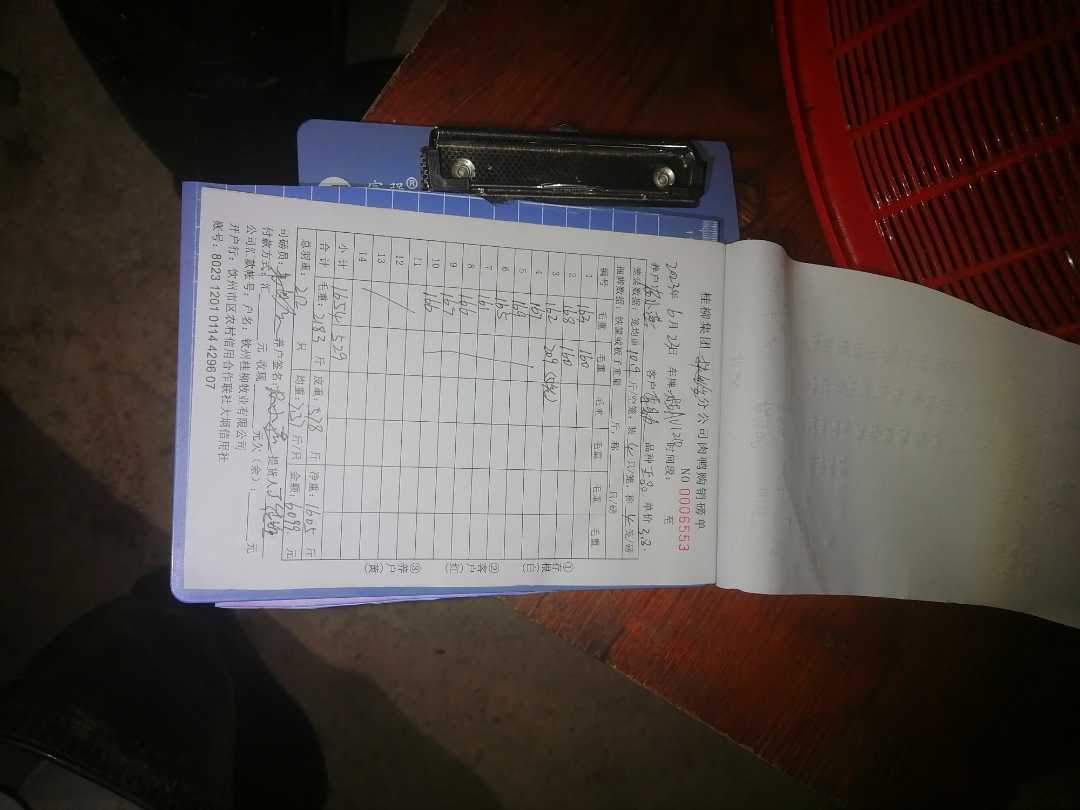 桂柳集团 分公司肉鸭购销磅单
NO 0006553
2023年 6月23日 车牌: 时间段: 至
客户 品种 单价 3.8.
装笼数据: 笼均重 10.9 斤/空笼, 装 4 只/笼, 称 4 笼/磅
斤, 称 只/磅
编号 毛重 毛重 毛重 毛重 毛重 毛重
1 164 160
2 168 160
3 162 209
4 167
5 164
6 165
7 161
8 166
9 167
10 166
11
12
13
14
小计 1654 529
合计 毛重: 2183 斤 皮重: 578 斤 净重: 1605 斤
总羽重: 212 只 均重: 7.57 斤/只 金额: 6099. 元
司磅员: 养户签名: 提货人:
付款方式: 汇 元 收现 元欠(余): 元
公司汇款帐号: 户名: 钦州桂柳牧业有限公司
开户行: 钦州市区农村信用合作联社大垌信用社
账号: 8023 1201 0114 4296 07
①存根(白)
②客户(红)
③养户(黄)